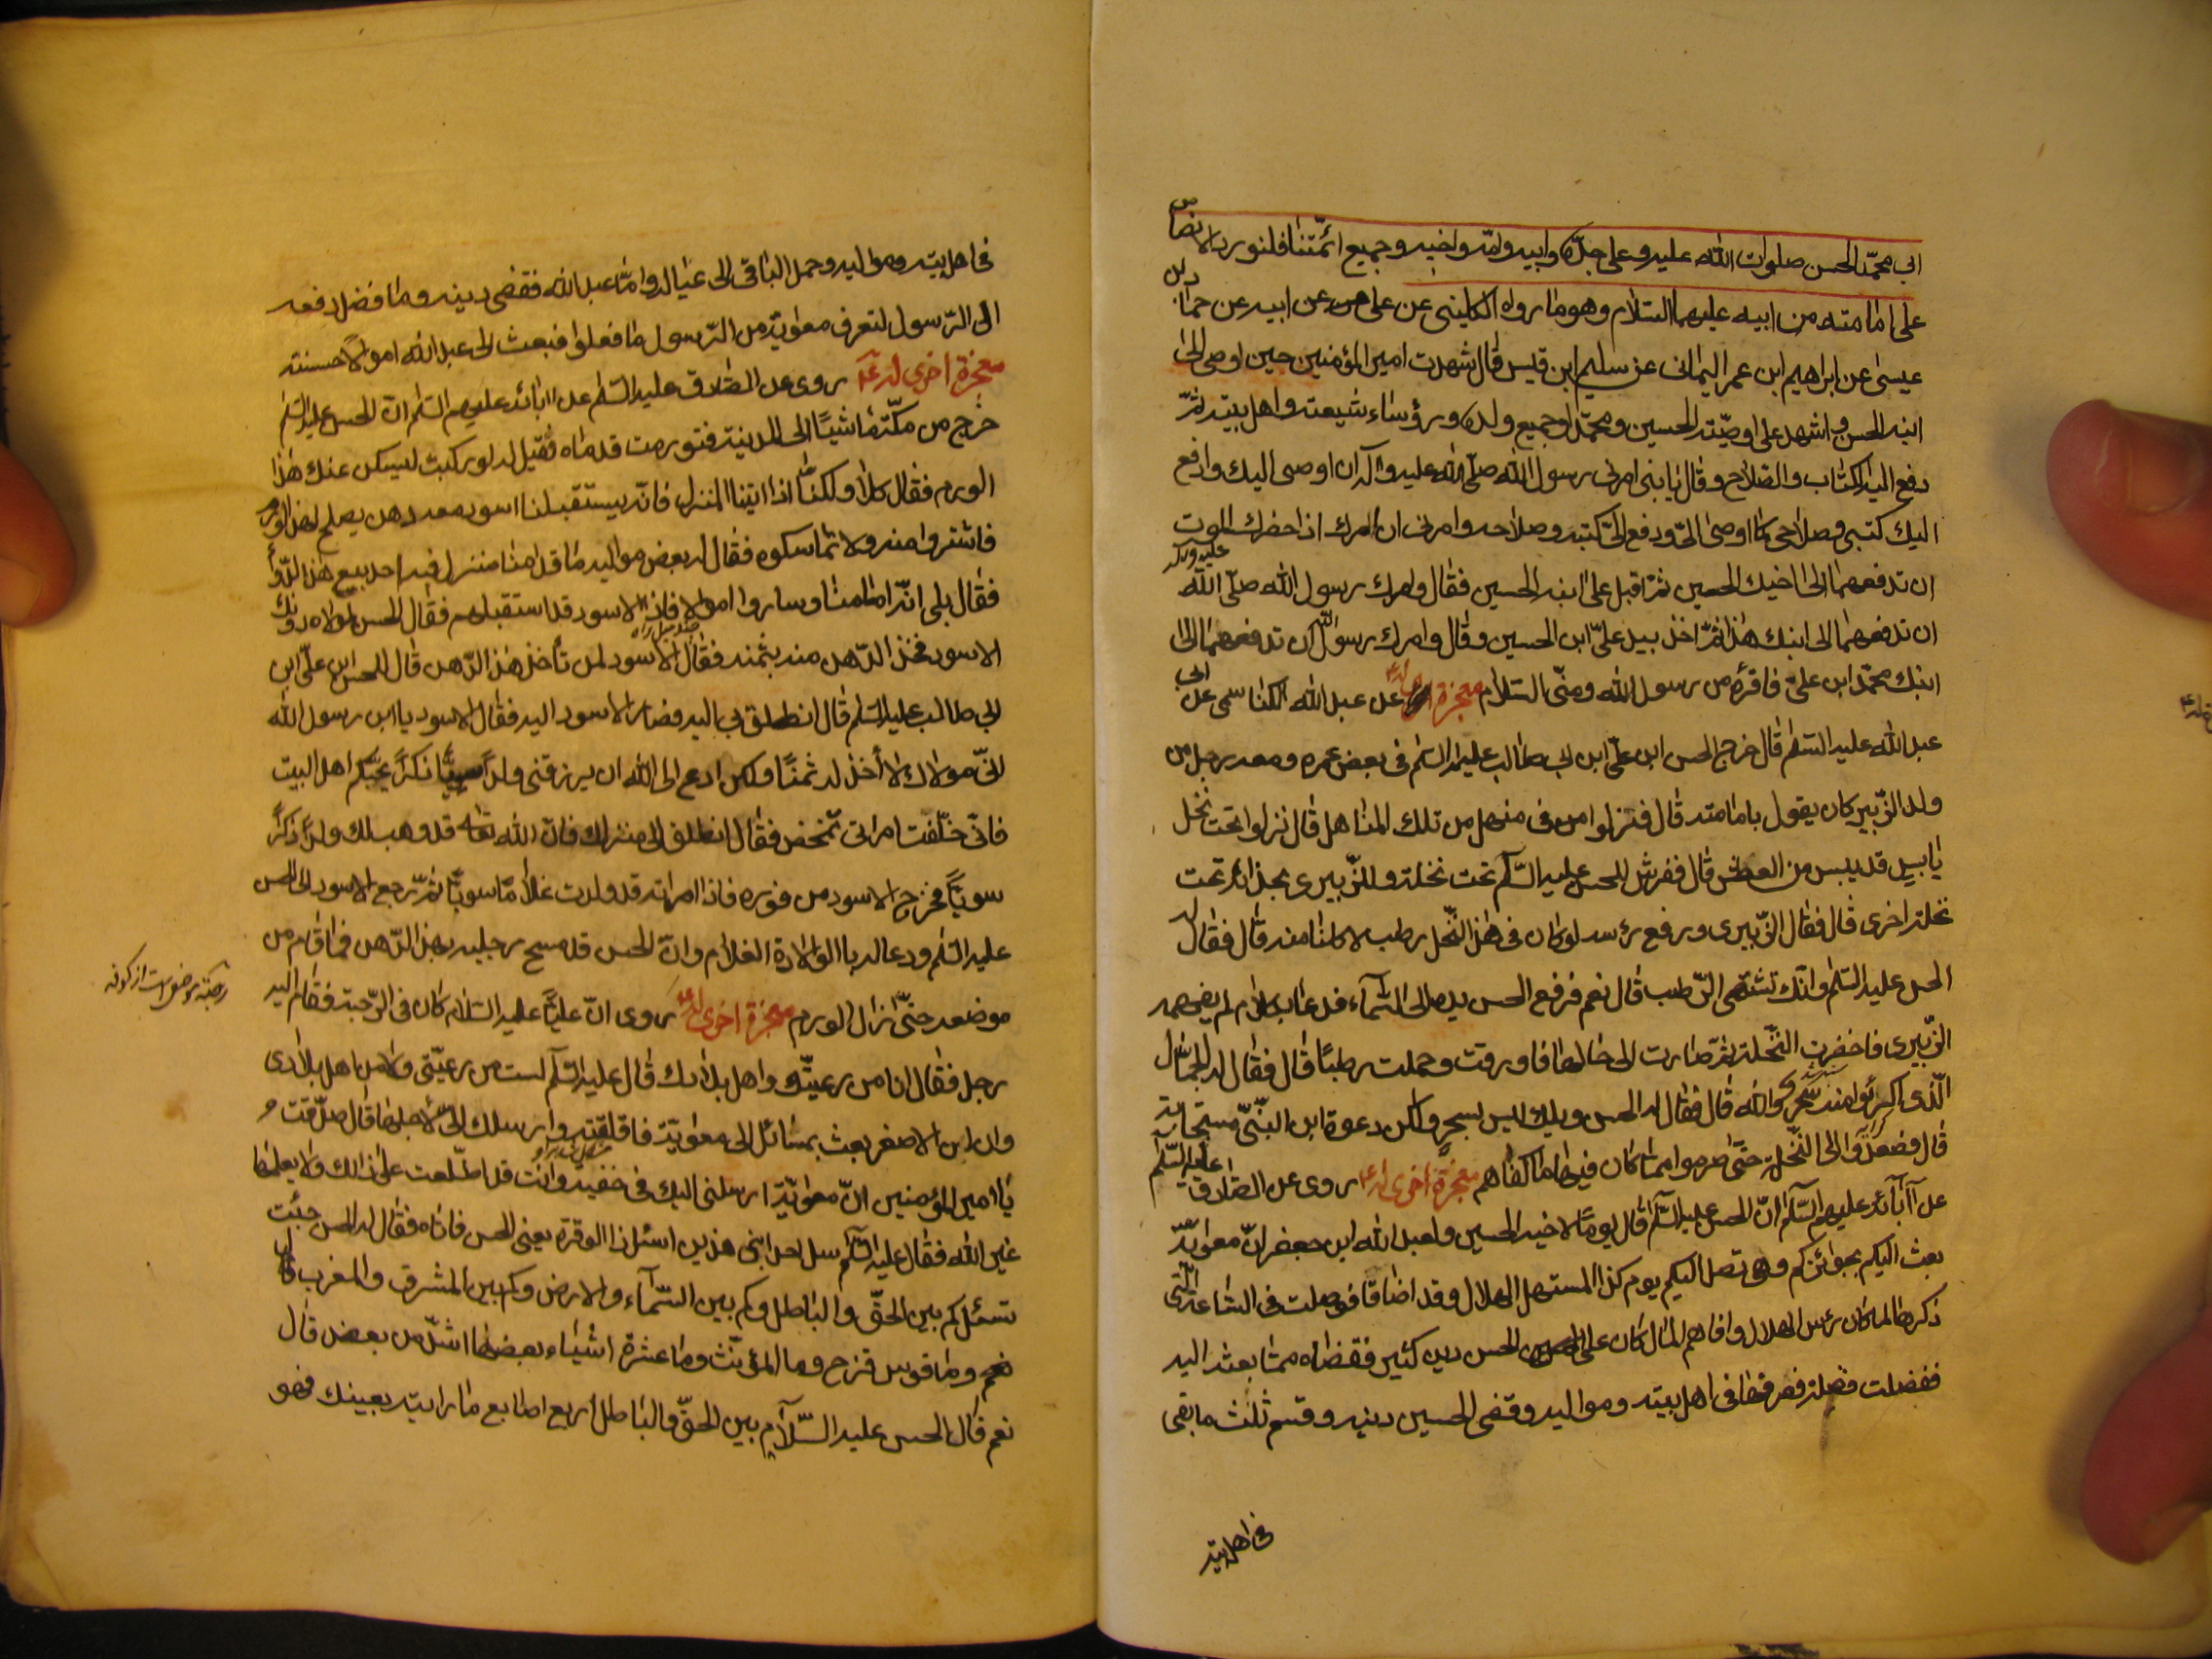 ابي محمّد الحسن صلوات الله عليه وعلى جدّه وابيه وامّه واخيه وجميع ائمّتنا فلنورد الانصاص
على امامته من ابيه عليهما السّلام وهو ما رواه الكلينى عن على عن ابيه عن حماد ابن
عيسى عن ابراهيم ابن عمر اليمانى عن سليم ابن قيس قال شهدت امير المؤمنين حين اوصى الى
ابنه الحسن واشهد على وصيّته الحسين ومحمّدا وجميع ولده ورؤساء شيعته واهل بيته ثمّ
دفع اليه الكتاب والسّلاح وقال يا بنى امرنى رسول الله صلّى الله عليه وآله ان اوصى اليك وادفع
اليك كتبى وصلاحى كما اوصى الىّ ودفع الىّ كتبه وصلاحه وامرنى ان آمرك اذا حضرك الموت
ان تدفعهما الى اخيك الحسين ثمّ اقبل على ابنه الحسين فقال وامرك رسول الله صلّى الله عليه وآله
ان تدفعهما الى ابنك هذا ثمّ اخذ بيد علىّ ابن الحسين وقال وامرك رسول الله ان تدفعهما الى
ابنك محمّد ابن علىّ فاقرأه من رسول الله ومنّى السّلام معجزة اخرى له ع عن عبد الله الكناسى عن ابى
عبد الله عليه السّلم قال خرج الحسن ابن علىّ ابن ابى طالب عليهما السّلم فى بعض عمره ومعه رجل من
ولد الزّبير كان يقول بامامته قال فنزلوا من فى منهل من تلك المناهل قال نزلوا تحت نخل
يابس قد يبس من العطش قال ففرش للحسن عليه السّلم تحت نخلة وللزّبيرى بحذائه تحت
نخلة اخرى قال فقال الزّبيرى ورفع رأسه لو كان فى هذا النّخل رطب لاكلنا منه قال فقال له
الحسن عليه السّلم وانّك تشتهى الرّطب قال نعم فرفع الحسن يده الى السّمآء فدعا بكلام لم يفهمه
الزّبيرى فاخضرت النّخلة ثمّ صارت الى حالها فاورقت وحملت رطبًا قال فقال له الجمّال
الّذى اكتروا منه سحر والله قال فقال له الحسن ويلك ليس بسحر ولكن دعوة ابن النّبىّ مستجابة
قال فصعدوا الى النّخلة حتّى صرموا ممّا كان فيها ما كفاهم معجزة اخرى له ع روى عن الصّادق عليه السّلم
عن آبائه عليهم السّلم انّ الحسن عليه السّلم قال يومًا لاخيه الحسين ولعبد الله ابن جعفر انّ معاويّة
بعث اليكم بجوائزكم وهى تصل اليكم يوم كذا المستهل الهلال وقد اضاقا فوصلت فى السّاعة الّتى
ذكرها لما كان رئس الهلال وافاهم المال كان على الحسن دين كثير فقضاه ممّا بعثه اليه
ففضلت فضلة ففرقها فى اهل بيته ومواليه وقضى الحسين دينه وقسم ثلث ما بقى
فى اهل بيته
فى اهل بيته ومواليه وحمل الباقى الى عياله وامّا عبد الله فقضى دينه وما فضل دفعه
الى الرّسول لتعرف معاويّة من الرّسول ما فعلوا فبعث الى عبد الله اموالًا حسنته
معجزة اخرى له ع روى عن الصّادق عليه السّلم عن ابائه عليهم السّلم انّ الحسن عليه السّلم
خرج من مكّة ماشيًا الى المدينة فتورمت قدماه فقيل له لو ركبت ليسكن عنك هذا
الورم فقال كلا ولكنّا اذا اتينا المنزل فانّه يستقبلنا اسود معه دهن يصلح لهذا الورم
فاشتروا منه ولا تماسكوه فقال له بعض مواليه ما قدامنا منزل فيه احد يبيع هذا الدّوأ
فقال بلى انّه امامنا وساروا اموالا فاذا الاسود قد استقبلهم فقال الحسن لمولاه دونك
الاسود فخذ الدّهن منه بثمنه فقال الاسود لمن تأخذ هذا الدّهن قال للحسن ابن علىّ ابن
ابى طالب عليه السّلم قال انطلق بى اليه فصار الاسود اليه فقال الاسود يا ابن رسول الله
انّى مولاك لا أخذ له ثمنًا ولكن ادع الى الله ان يرزقنى ولدًا سويًّا ذكرًا يحبّكم اهل البيت
فانّى خلّفت امراتى تمخض فقال انطلق الى منزلك فانّ الله تعالى قد وهب لك ولدًا ذكرًا
سويًّا فخرج الاسود من فوره فاذا امراته قد ولدت غلامًا سويًّا ثمّ رجع الاسود الى الحسن
عليه السّلم ودعا له باالولادة الغلام وانّ الحسن قد مسح رجليه بهذا الدّهن فما قام من
موضعه حتّى زال الورم معجزة اخرى له ع روى انّ عليًّا عليه السّلام كان فى الرّحبة فقام اليه
رجل فقال انا من رعيتّك واهل بلادك قال عليه السّلم لست من رعيّتى ولا من اهل بلادى
وان ابن الاصفر بعث بمسائل الى معاويّة فاقلقته وارسلك الىّ لاجلها قال صدّقت
يا امير المؤمنين انّ معاويّة ارسلنى اليك فى خفيه وانت قد اطّلعت على ذالك ولا يعلمها
غير الله فقال عليه السّلم سل احد ابنى هذين اسئل ذا الوفرة يعنى الحسن فاتاه فقال له الحسن جئت
تسئل كم بين الحقّ والباطل وكم بين السّمآء والارض وكم بين المشرق والمغرب قال
نعم وما قوس قزح وما المؤنّث وما عشرة اشياء بعضها اشدّ من بعض قال
نعم قال الحسن عليه السّلام بين الحقّ والباطل اربع اصابع ما رايته بعينك فهو